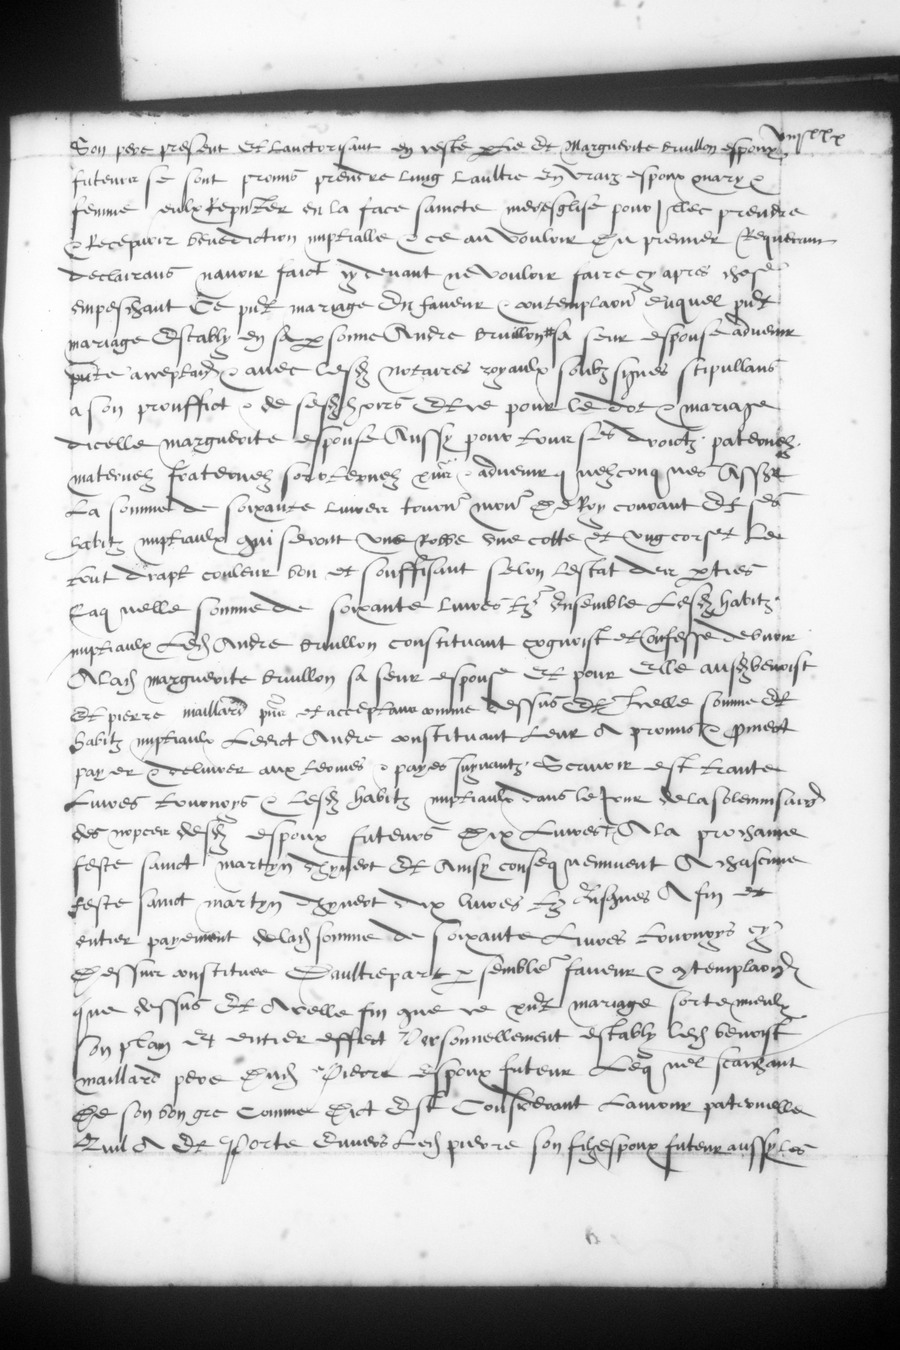 Son pere present et lauctorisant en ceste ptie et Marguerite Brullon espoux
futeurs se sont promis prendre lung laultre en vraiz espoux mary &
femme eulx en la face saincte mere esglise pour illec prendre
& Recepvoir benediction nuptialle & ce au vouloir du premier Requerant
declairans navoir faict cy devant ne vouloir faire cy apres chose
empeschant Ce pnt mariage En faveur & contemplaon duquel pnt
mariage Estably en sa psonne Andre Brullon sa seur espouse advenir
pnte acceptant & avec lesd notaires royaulx soubz signes stipullans
a son prouffict & de ses hoirs Et ce pour le dot & mariage
dicelle marguerite espouse Aussy pour tous ses droictz paternelz
maternelz fraternelz sororternelz & advenir quelzconques
La somme de soixante livres tourn monn du Roy courant Et ses
habitz nuptiaulx qui seront une Robbe une cotte Et ung corset Le
tout drapt couleur bon et souffisant selon lestat des pties
Laquelle somme de soixante livres tz Ensemble Lesd habitz
nuptiaulx Led Andre Brullon constituant cognoist et Confesse debvoir
A lad marguerite Brullon sa seur espouse Et pour Elle ausd benoist
Et pierre maillard pns et acceptans comme dessus Et Icelle somme Et
habitz nuptiaulx Ledict Andre constituant leur A promis & promect
payer & delivrer aux termes & payes suyvantz Scavoir est trante
Livres tournoys & Lesd habitz nuptiaulx dans le Jour de la solemnisaon
des nopces desd espoux futeurs Dix Livres A la prochaine
feste sainct martyn dhyvert Et Ainsy consequemment A chascune
feste sainct martyn dhyvert dix livres tz A fin Et
entier payement de lad somme de soixante Livres tournoys cy
Dessus constituee Daultrepart p semble faveur & contemplaon
que dessus Et A celle fin que ce pnt mariage sorte mieulx
Son plain Et entier effect Personnellement estably led benoist
maillard pere dud Pierre Espoux futeur Lequel scaichant
De son bon gre Comme Dict Est Considerant Lamour paternelle
Quil A Et Porte Envers Led pierre son filz espoux futeur aussy les